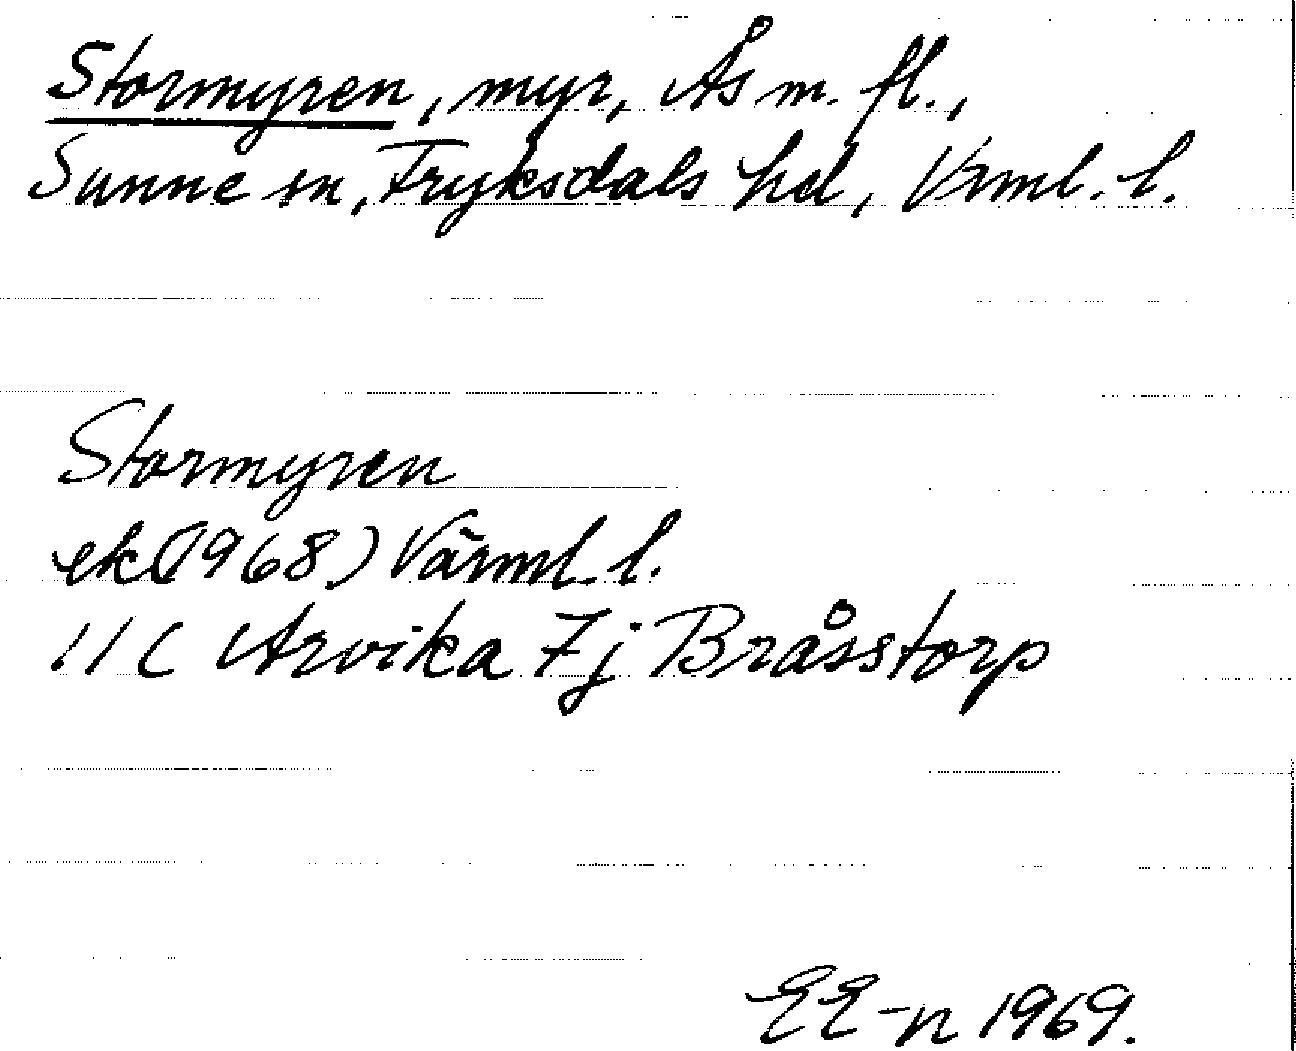 Stormyren, myr, Ås m. fl.,
Sunne sn, Fryksdals hd, Vrml. l.
Stormyren
ek (1968) Värml. l.
11C Arvika 7j Bråsstorp
EE-n 1969.